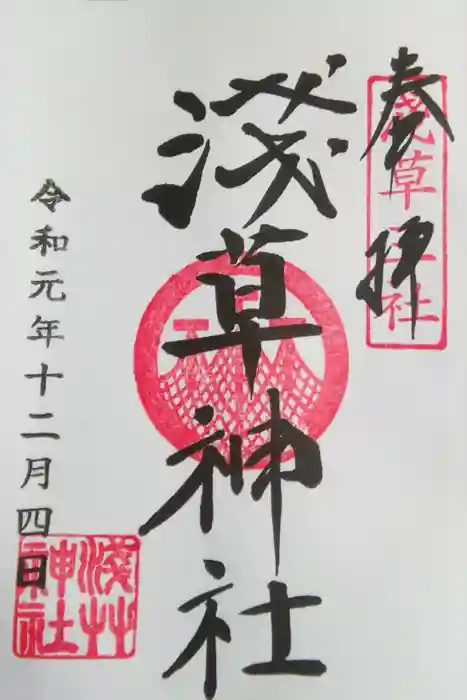 奉拝
淺草神社
淺草神社
令和元年十二月四日
淺草神社